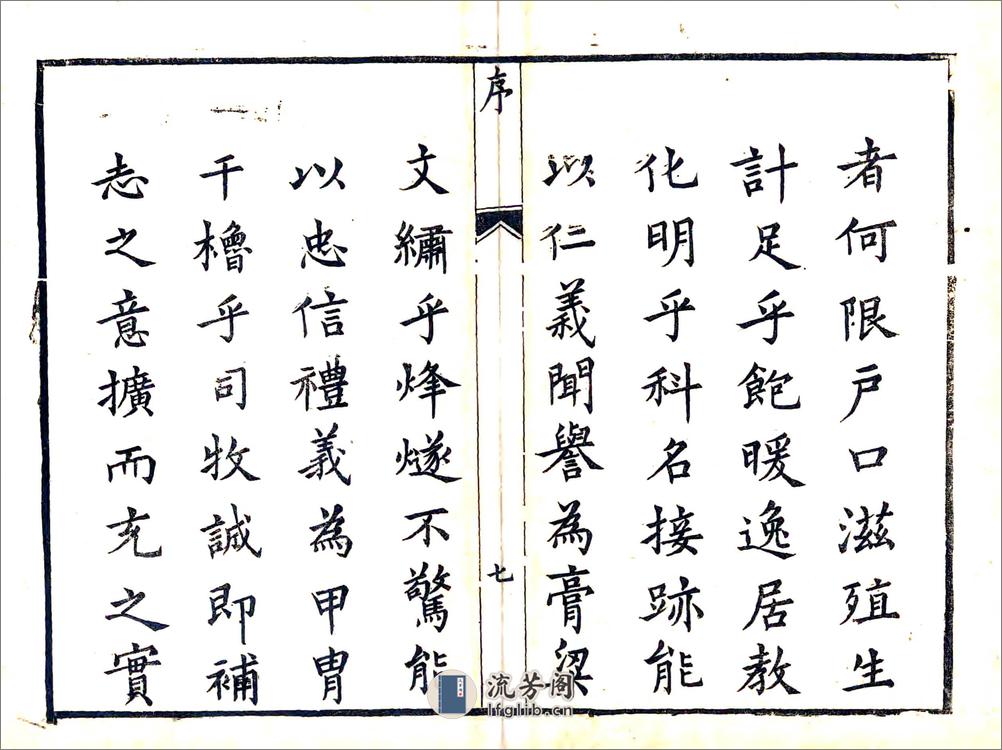 者何限戸口滋殖生
計足乎飽暖逸居教
化明乎科名接跡能
以仁義聞譽為膏粱
序
七
文繡乎烽燧不驚能
以忠信禮義為甲胄
干櫓乎司牧誠即補
志之意擴而充之實
流芳阁
lfglib.cn